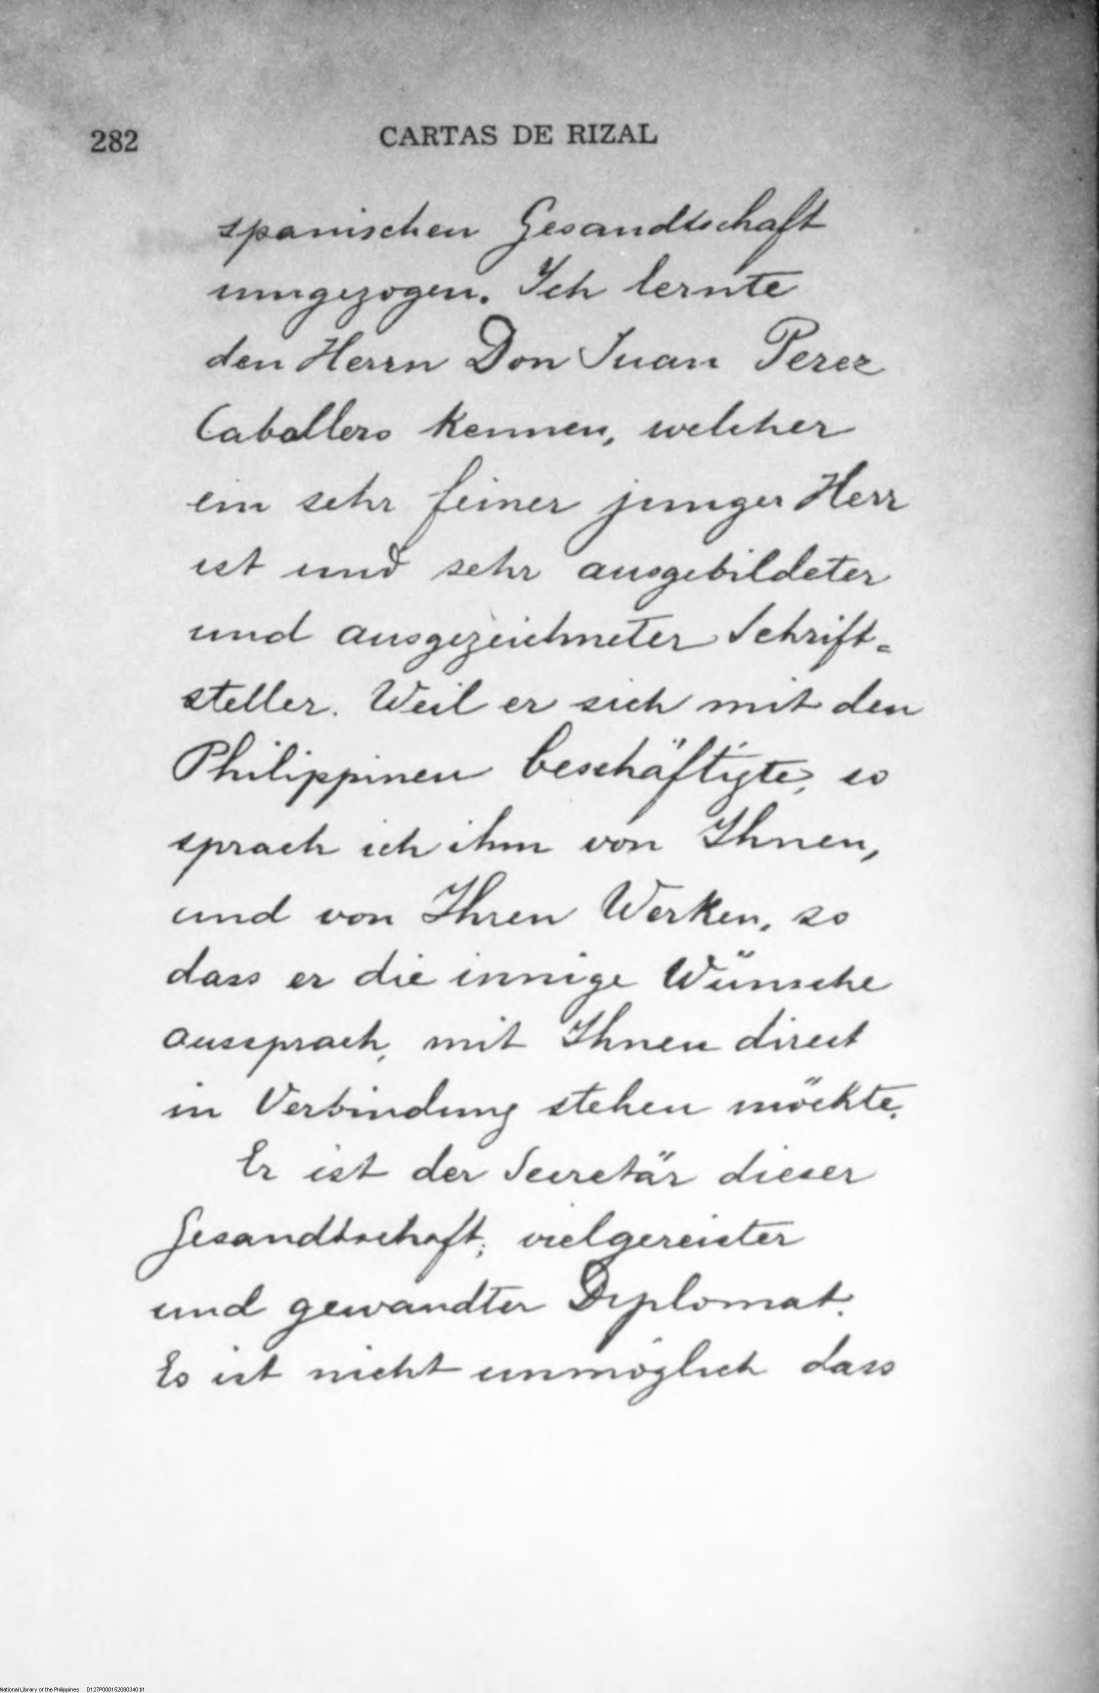 282
CARTAS DE RIZAL
spanischen Gesandtschaft
umgezogen. Ich lernte
den Herrn Don Juan Perez
Caballero kennen, welcher
ein sehr feiner junger Herr
ist und sehr ausgebildeter
und ausgezeichneter Schrift-
steller. Weil er sich mit den
Philippinen beschäftigte, so
sprach ich ihm von Ihnen,
und von Ihren Werken, so
dass er die innige Wünsche
aussprach, mit Ihnen direct
in Verbindung stehen möchte.
Er ist der Secretär dieser
Gesandtschaft; vielgereister
und gewandter Diplomat.
Es ist nicht unmöglich dass
National Library of the Philippines